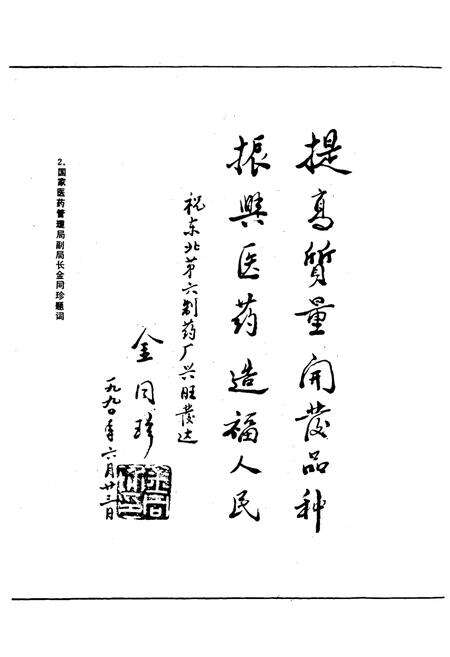 提高質量開發品种
振興医药造福人民
祝东北第六制药厂兴旺發达
金同珍
一九九〇年六月廿三日
2.国家医药管理局副局长金同珍题词